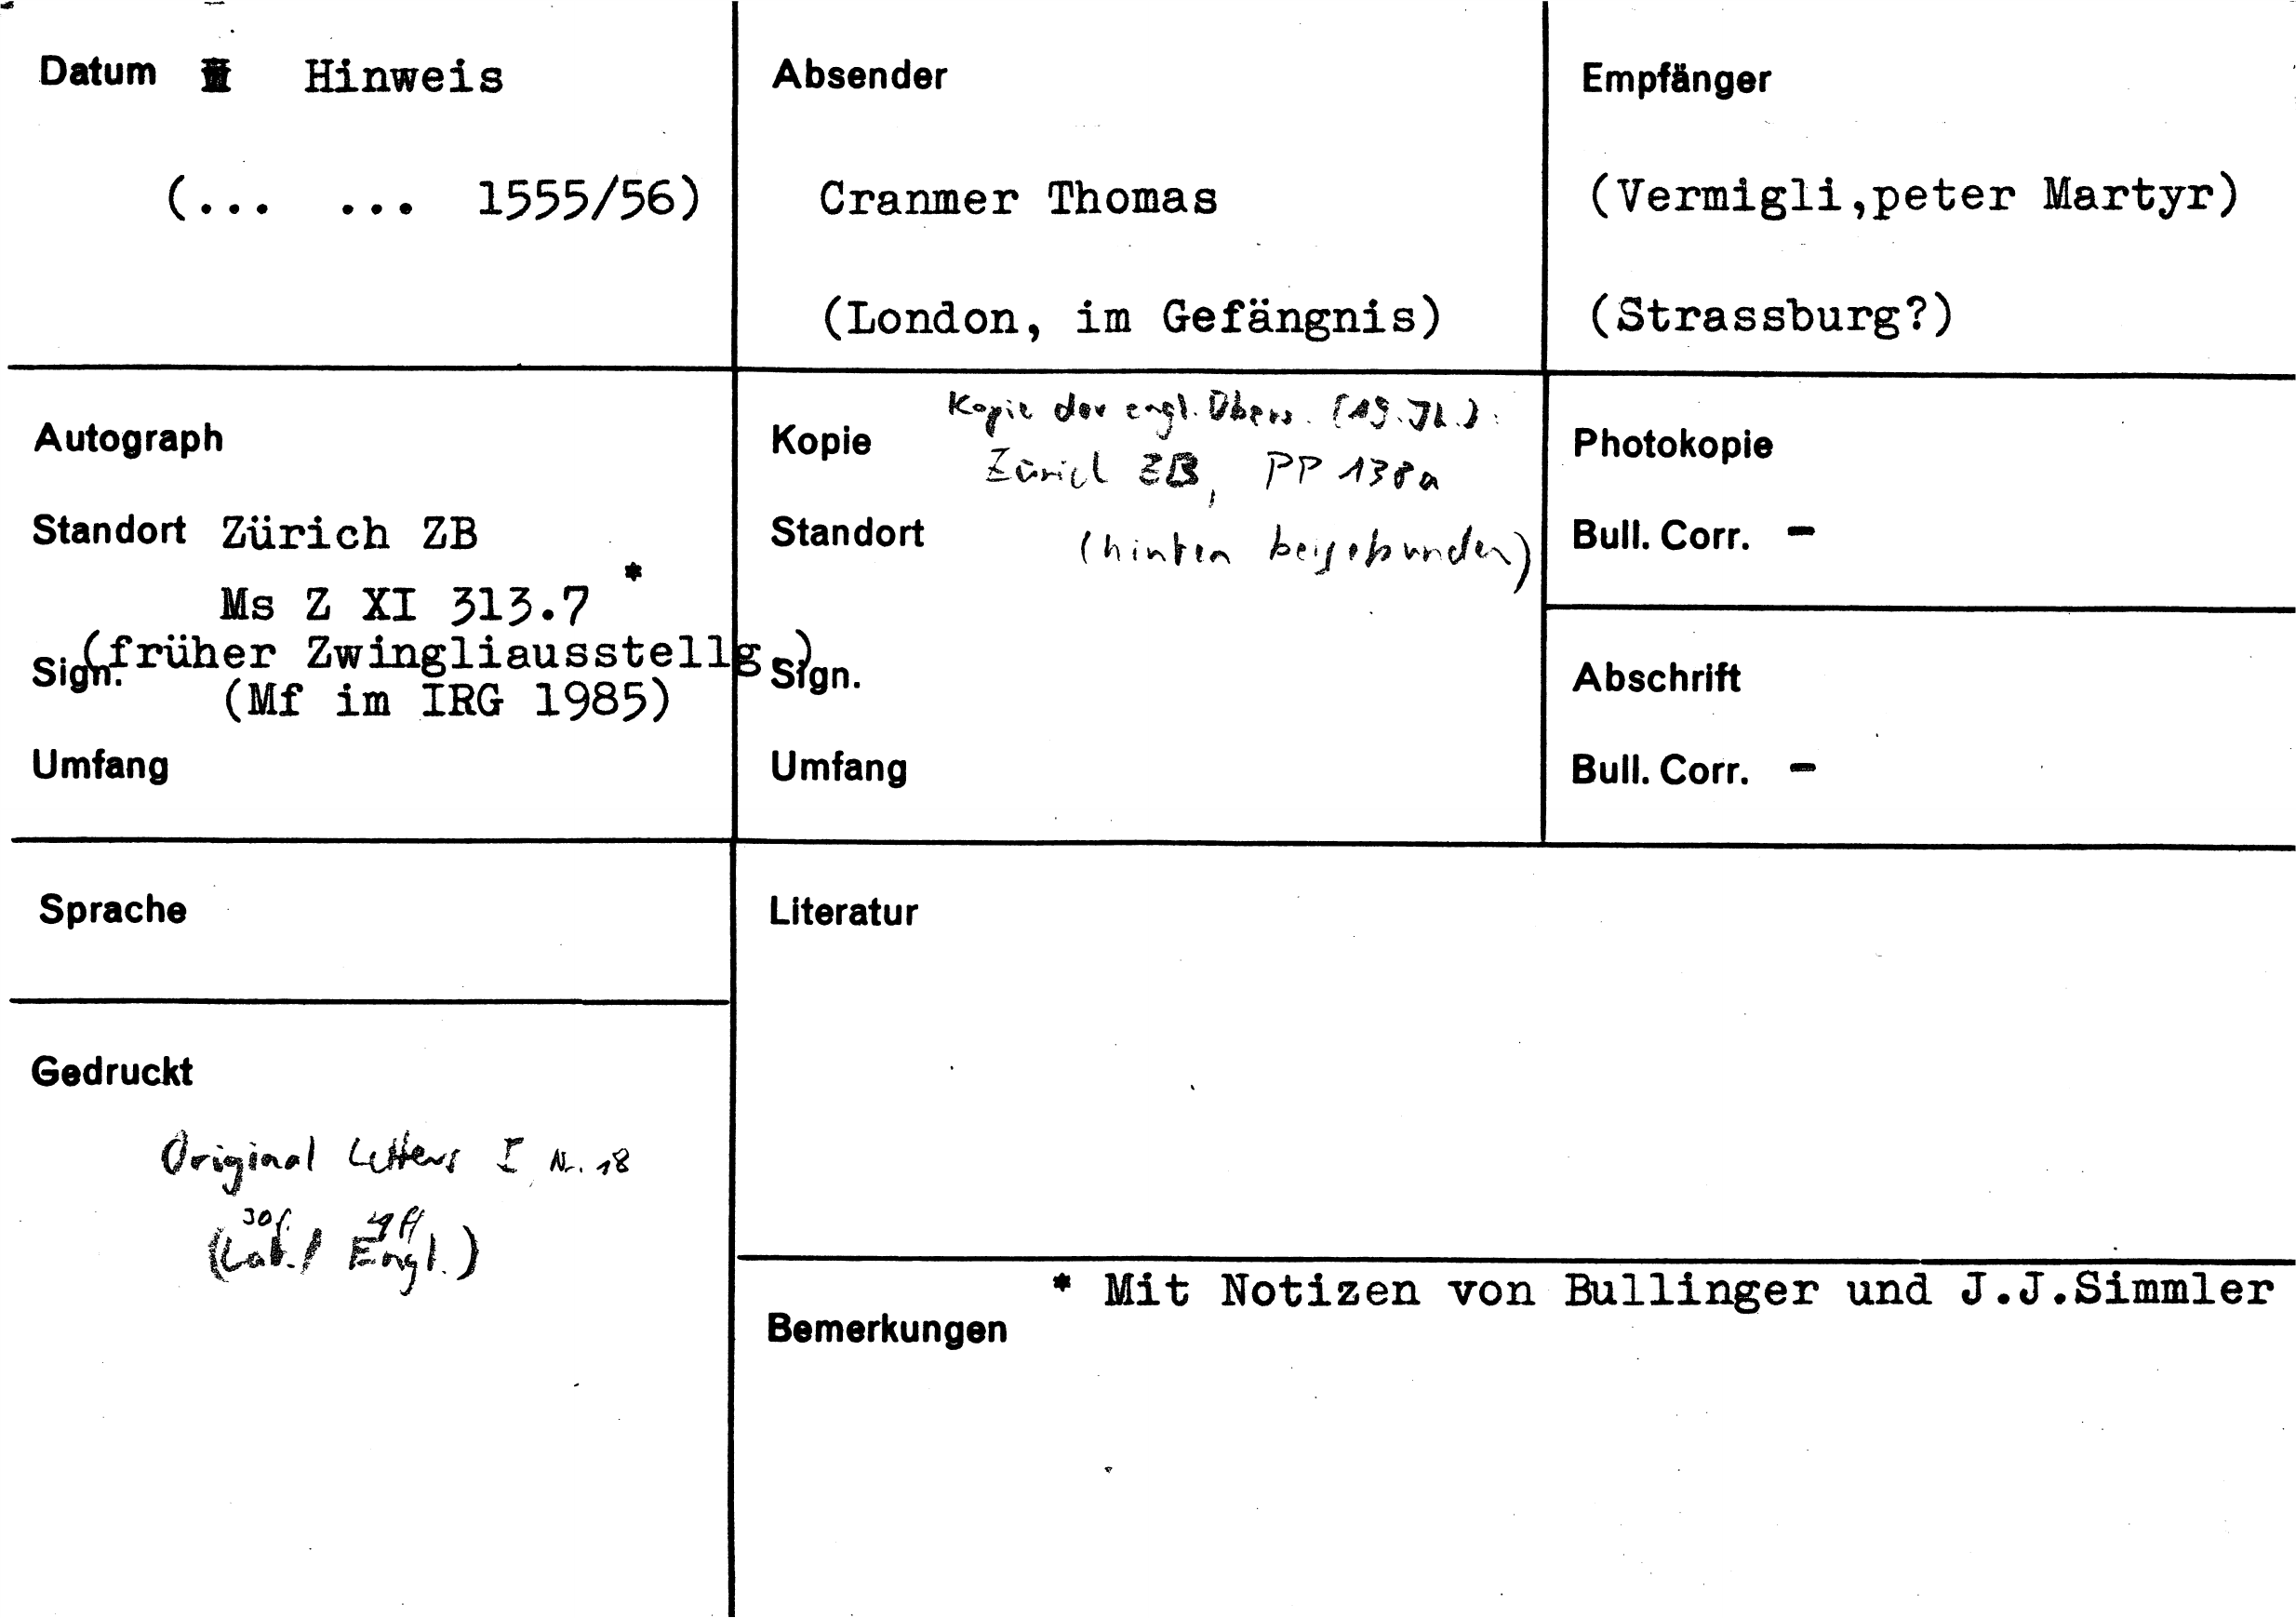 Datum Hinweis
(... ... 1555/56)
Absender
Cranmer Thomas
(London, im Gefängnis)
Empfänger
(Vermigli,peter Martyr)
(Strassburg?)
Autograph
Standort Zürich ZB
Ms Z XI 313.7 *
(früher Zwingliausstellg.)
Sign.
(Mf im IRG 1985)
Umfang
Kopie der engl. Übers. (19. Jh.):
Kopie
Zürich ZB, PP 138a
Standort
(hinten beigebunden)
Sign.
Umfang
Photokopie
Bull. Corr. -
Abschrift
Bull. Corr. -
Sprache
Gedruckt
Original Letters I Nr. 18
30f.
(Lat./ Engl.)
Literatur
* Mit Notizen von Bullinger und J.J.Simmler
Bemerkungen